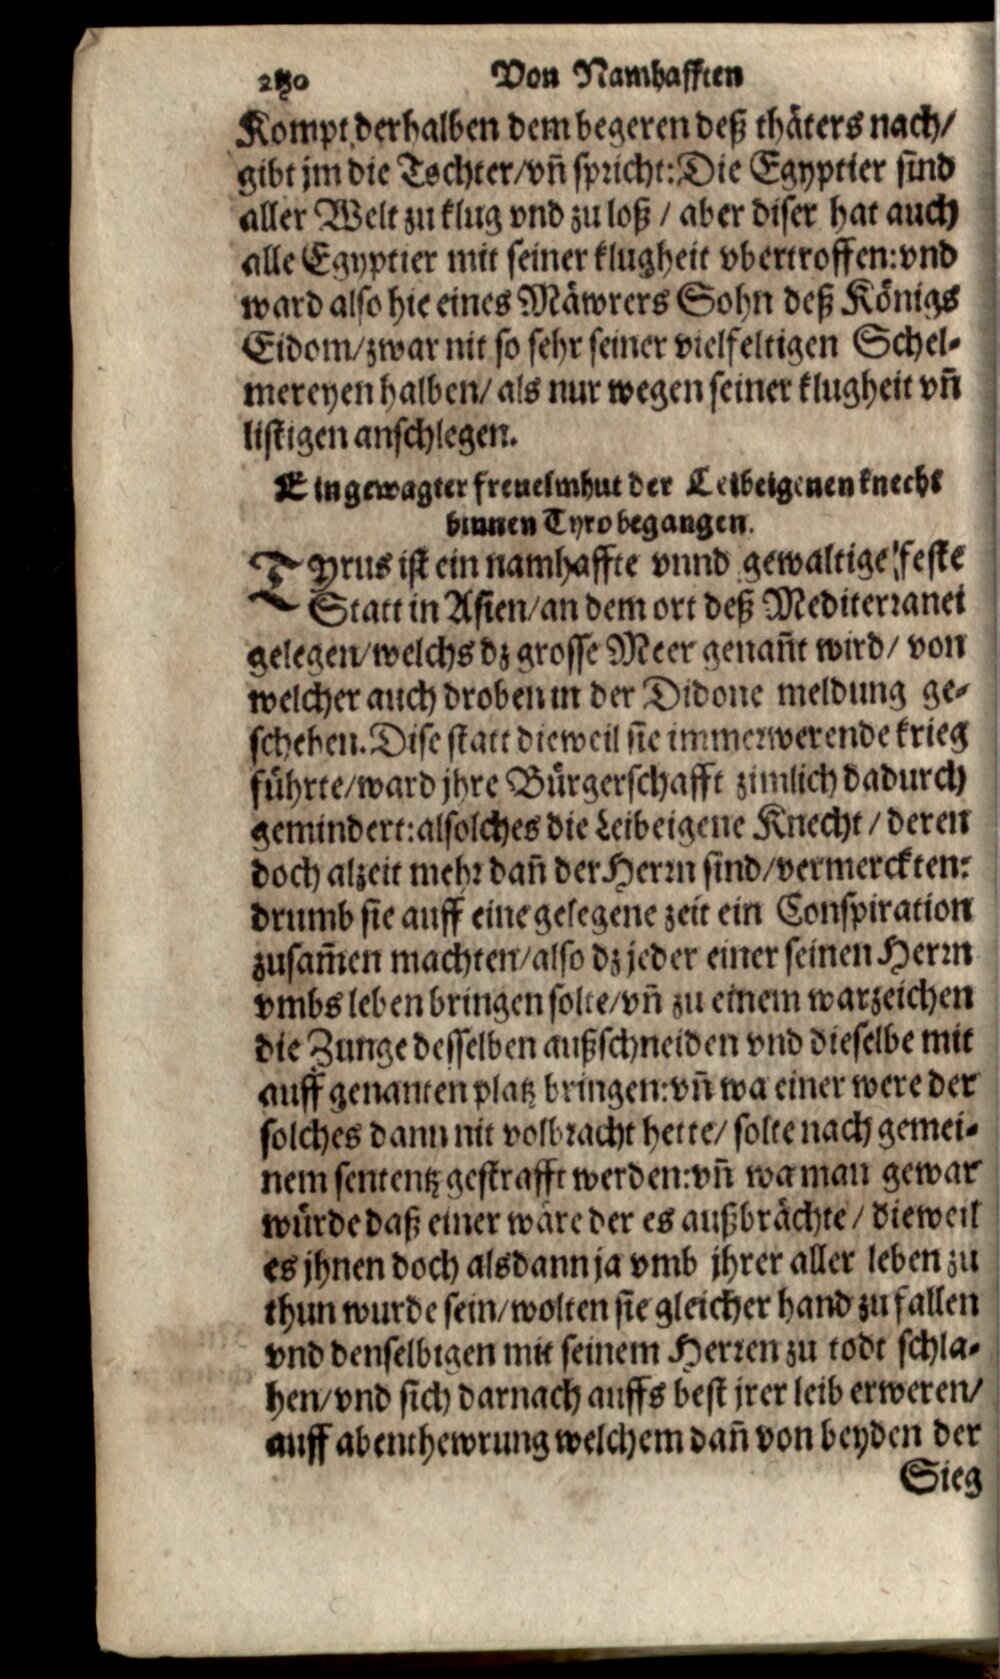 Von Namhafften
Kompt derhalben dem begeren deß thäters nach/
gibt jm die Tochter/vñ spricht: Die Egyptier sind
aller Welt zu klug vnd zu loß / aber diser hat auch
alle Egyptier mit seiner klugheit vbertroffen: vnd
ward also hie eines Mäwrers Sohn deß Königs
Eidom/zwar nit so sehr seiner vielfeltigen Schel-
mereyen halben/ als nur wegen seiner klugheit vñ
listigen anschlegen.
Ein gewagter freuelmhut der Leibeigenen knecht
binnen Tyro begangen.
Tyrus ist ein namhaffte vnnd gewaltige feste
Statt in Asien/an dem ort deß Mediterranei
gelegen/welchs dz grosse Meer genañt wird/ von
welcher auch droben in der Didone meldung ge-
schehen. Dise statt dieweil sie immerwerende krieg
führte/ward jhre Bürgerschafft zimlich dadurch
gemindert: alsolches die Leibeigene Knecht / deren
doch alzeit mehr dañ der Herrn sind/vermerckten:
drumb sie auff eine gelegene zeit ein Conspiration
zusam̃en machten/also dz jeder einer seinen Herrn
vmbs leben bringen solte/vñ zu einem warzeichen
die Zunge desselben außschneiden vnd dieselbe mit
auff genanten platz bringen: vñ wa einer were der
solches dann nit volbracht hette/ solte nach gemei-
nem sententz gestrafft werden: vñ wa man gewar
würde daß einer wäre der es außbrächte / dieweil
es jhnen doch alsdann ja vmb jhrer aller leben zu
thun wurde sein/wolten sie gleicher hand zu fallen
vnd denselbigen mit seinem Herren zu todt schla-
hen/vnd sich darnach auffs best jrer leib erweren/
auff abenthewrung welchem dañ von beyden der
Sieg